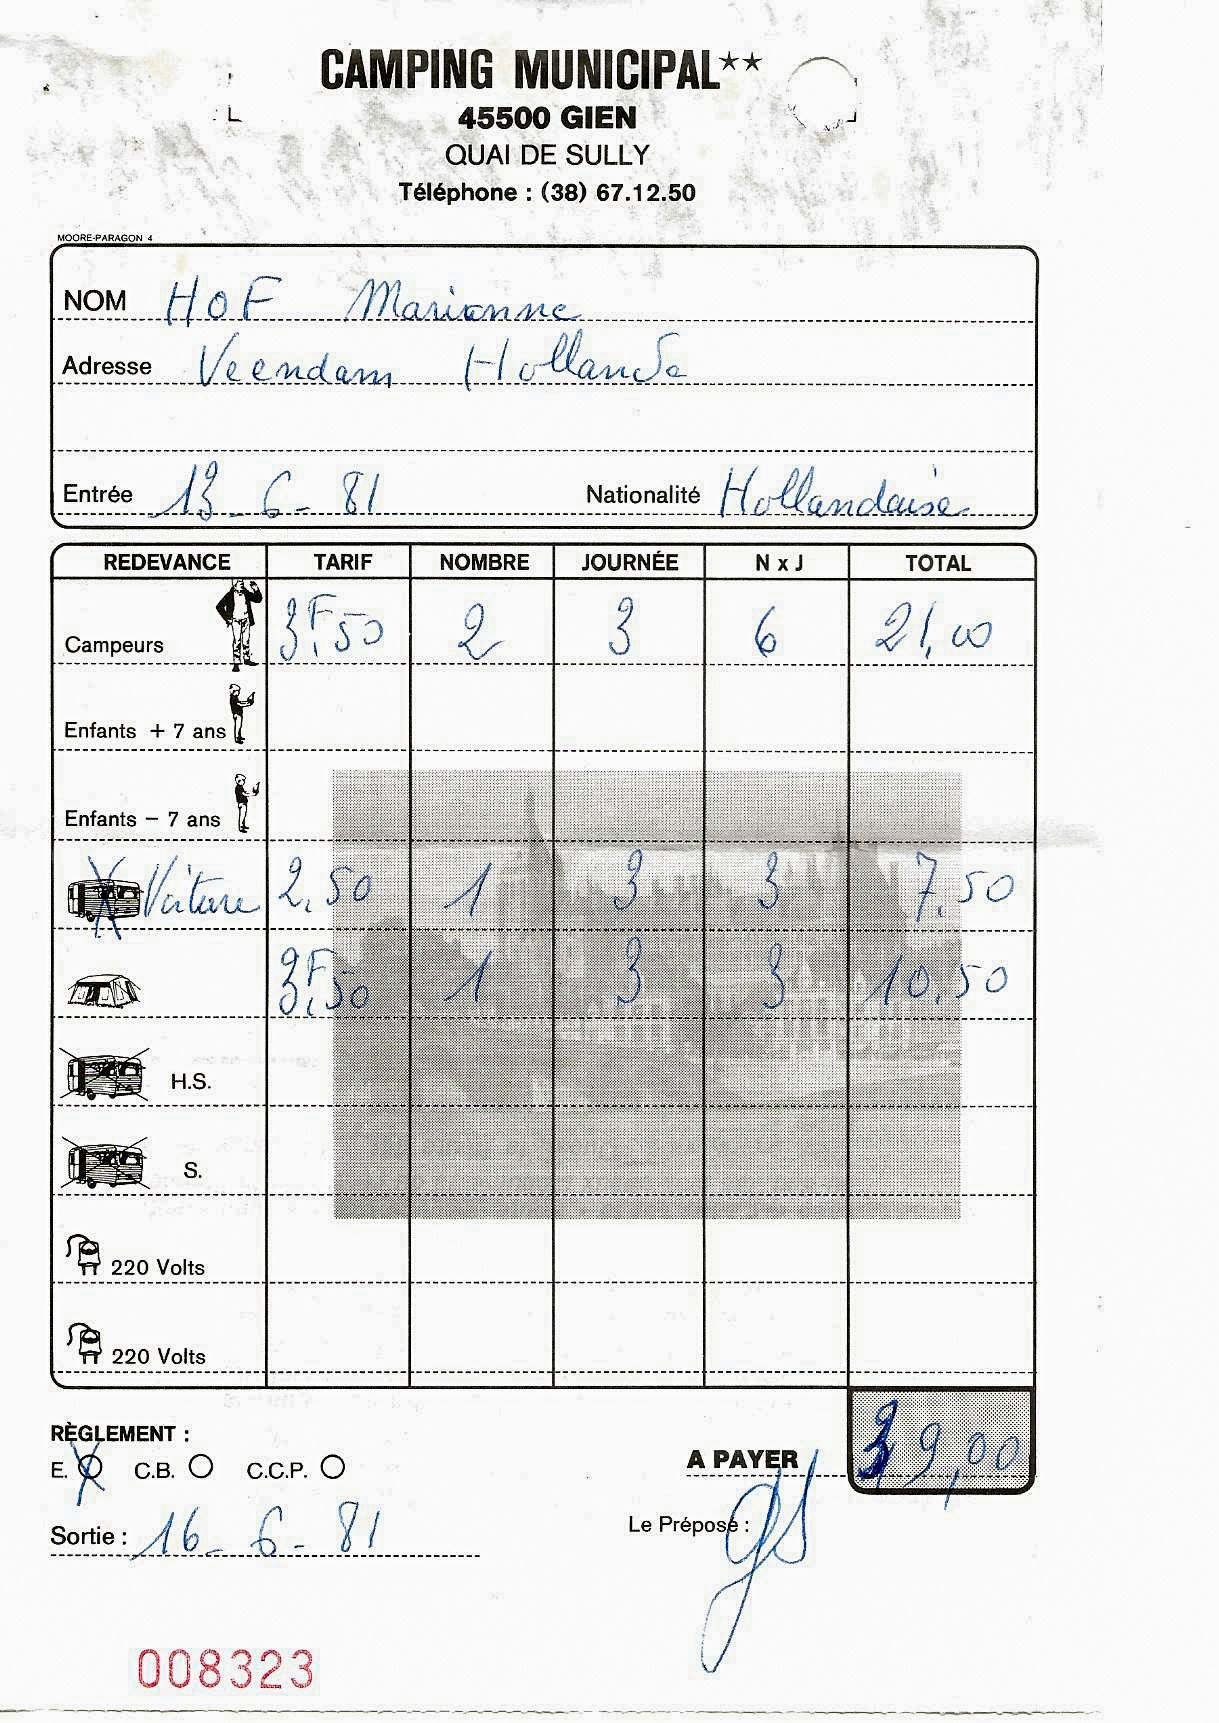 CAMPING MUNICIPAL**
45500 GIEN
QUAI DE SULLY
Téléphone : (38) 67.12.50
MOORE-PARAGON 4
NOM HOF Marianne
Adresse Veendam Hollande
Entrée 13-6-81 Nationalité Hollandaise
REDEVANCE TARIF NOMBRE JOURNÉE N x J TOTAL
Campeurs 3F,50 2 3 6 21,00
Enfants + 7 ans
Enfants – 7 ans
Voiture 2,50 1 3 3 7,50
3F,50 1 3 3 10,50
H.S.
S.
220 Volts
220 Volts
RÈGLEMENT :
E. C.B. C.C.P. A PAYER 39,00
Sortie : 16-6-81 Le Préposé :
008323